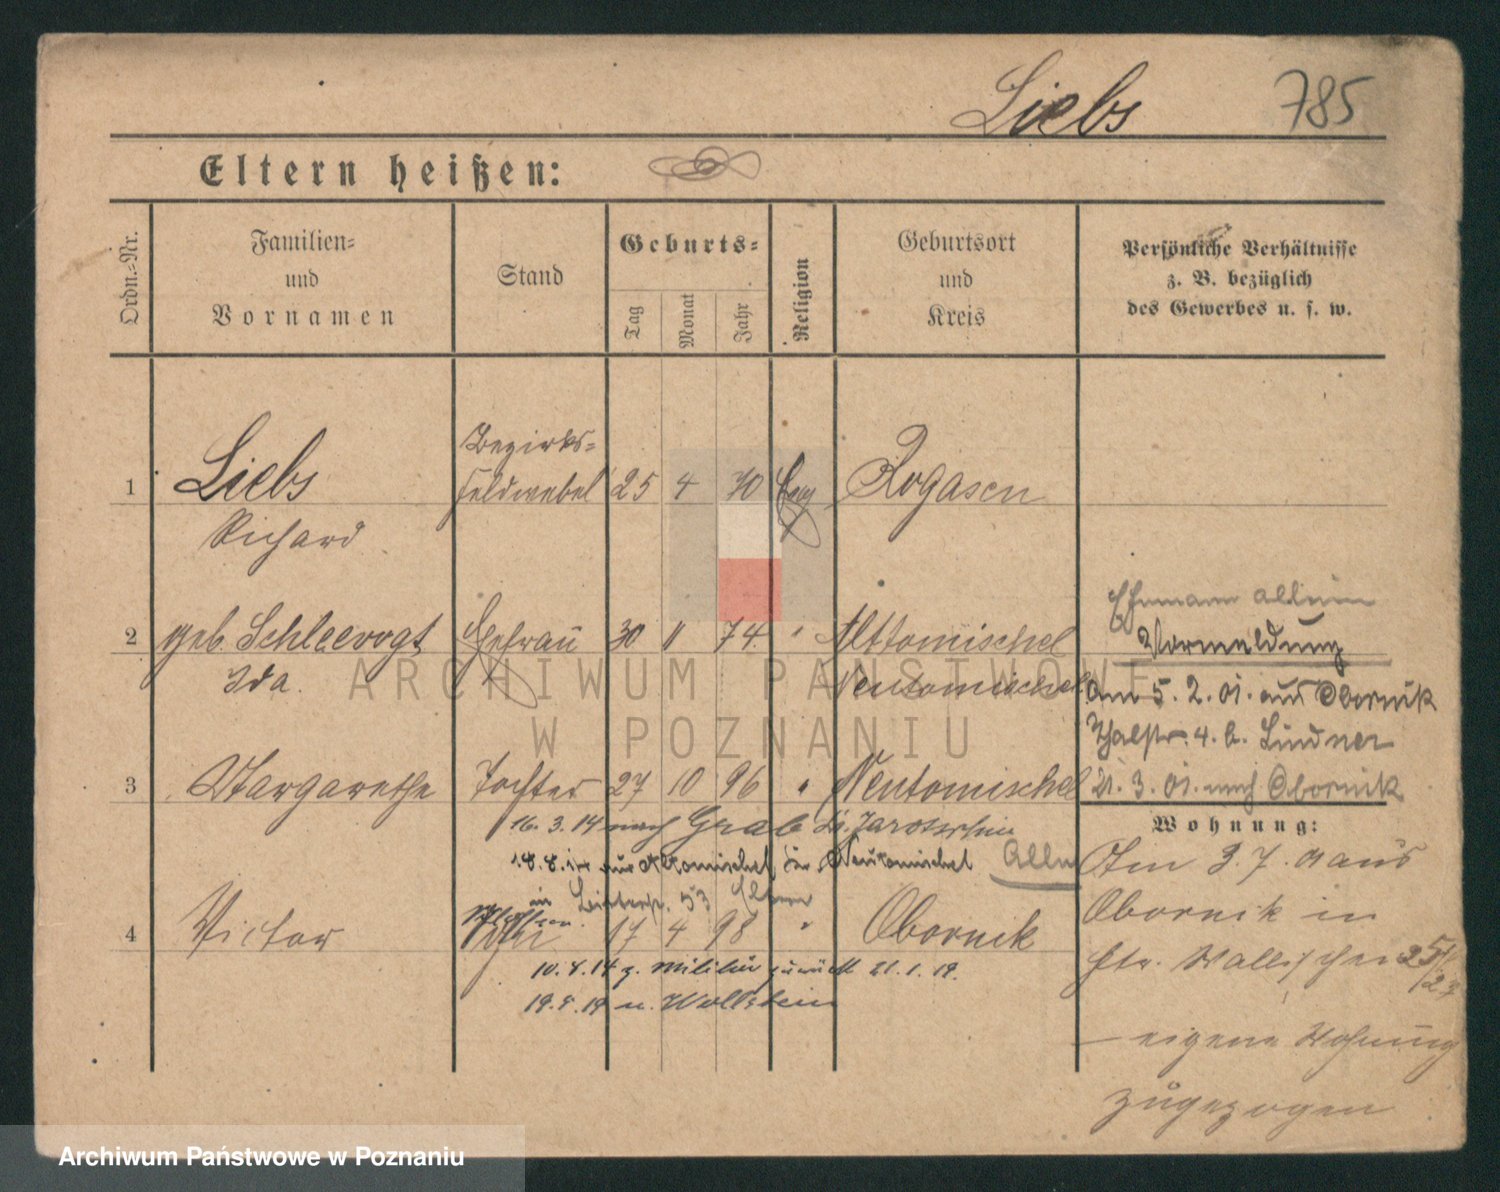 Liebs 785
Eltern heißen:
Ordn.-Nr.
Familien-
und
Vornamen
Stand
Geburts-
Tag
Monat
Jahr
Religion
Geburtsort
und
Kreis
Persönliche Verhältnisse
z. B. bezüglich
des Gewerbes u. s. w.
Bezirks-
1 Liebs feldwebel 25 4 70 Evg Rogasen
Richard
Ehemann allein
2 geb. Schleevogt Ehefrau 30 11 74 " Alttomischel
Vormeldung
Ida. Neutomischel
am 5. 2. 01. aus Obornik
Thalstr. 4. b. Lindner
3 Margarethe Tochter 27 10 96 " Neutomischel
21. 3. 01. nach Obornik
16. 3. 14 nach Grab Kr. Jarotschin
Wohnung:
18. 8. 14 aus Alttomischel Kr. Neutomischel
Am 3. 7. 01 aus
53 Eltern
4 Victor Sohn 17 4 98 " Obornik
Obornik in
10. 8. 14 z. Militär zurück 21. 1. 19.
str. Wallischei
19. 8. 19 n. Wollstein
eigene Wohnung
zugezogen
ARCHIWUM PAŃSTWOWE
W POZNANIU
Archiwum Państwowe w Poznaniu